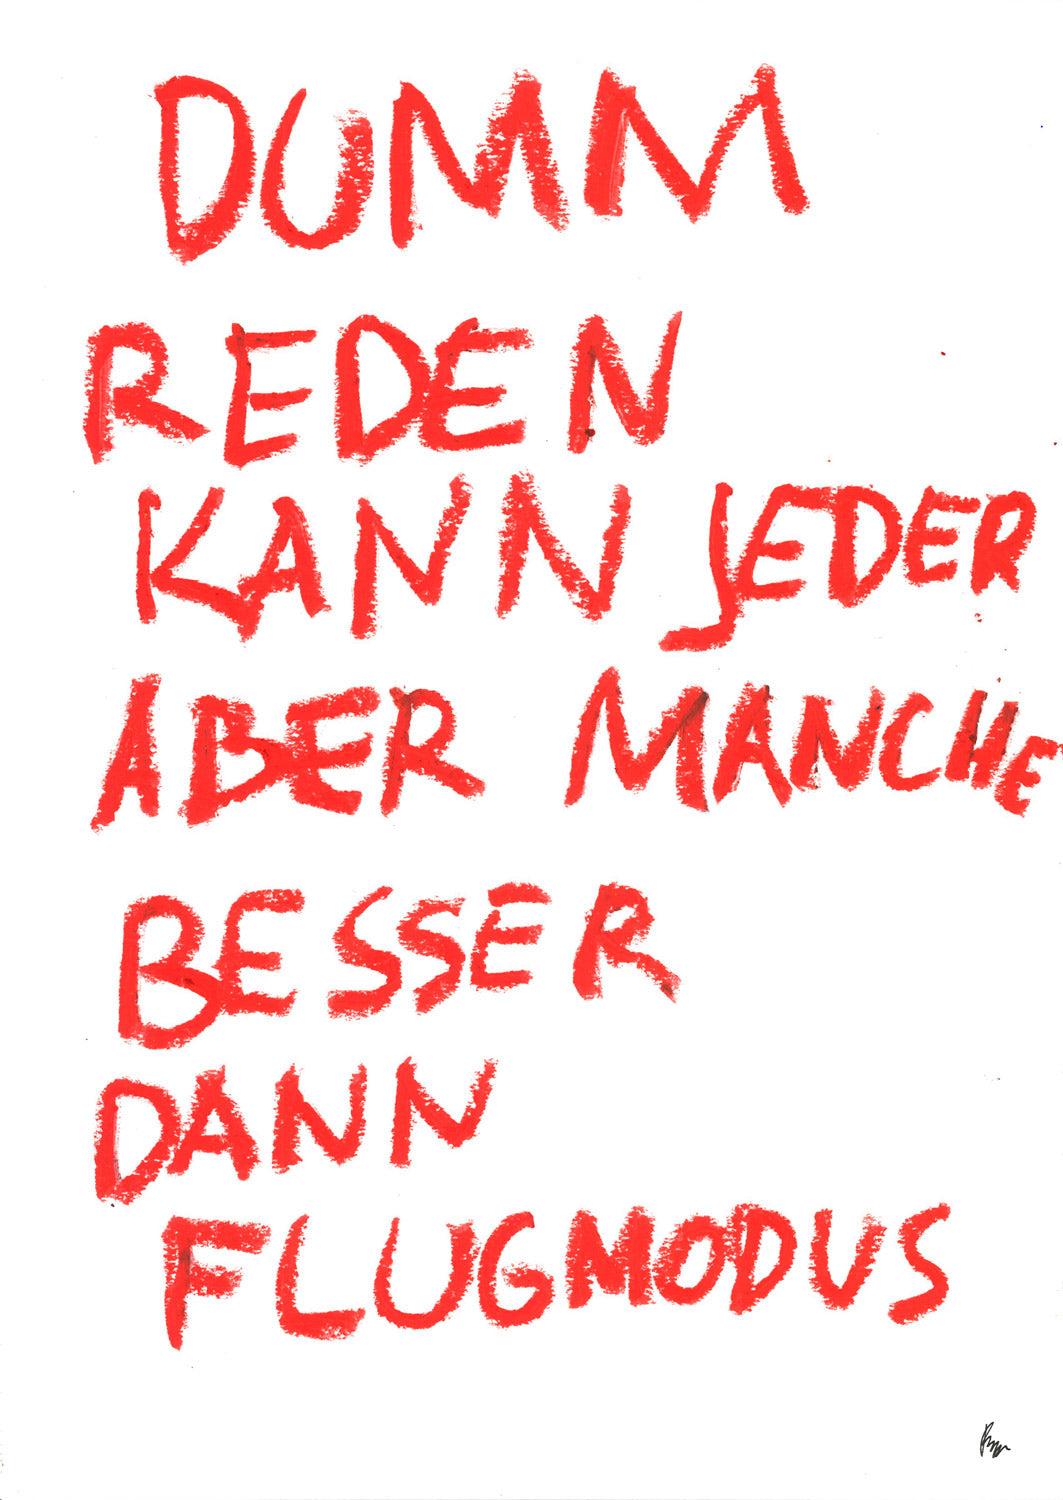 DUMM
REDEN
KANN JEDER
ABER MANCHE
BESSER
DANN
FLUGMODUS